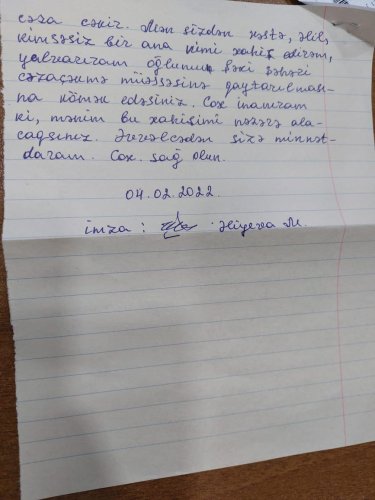 cəza cəkir. Mən sizdən xəstə, əlil,
kimsəsiz bir ana kimi xahiş edirəm,
yalvarıram oğlumun Bakı şəhəri
cəzaçəkmə müəssəsinə qaytarılması-
na kömək edəsiniz. Cox inanıram
ki, mənim bu xahişimi nəzərə ala-
caqsınız. Əvvəlcədən sizə minnət-
daram. Cox sağ olun.
04.02.2022
imza : Əliyeva M.